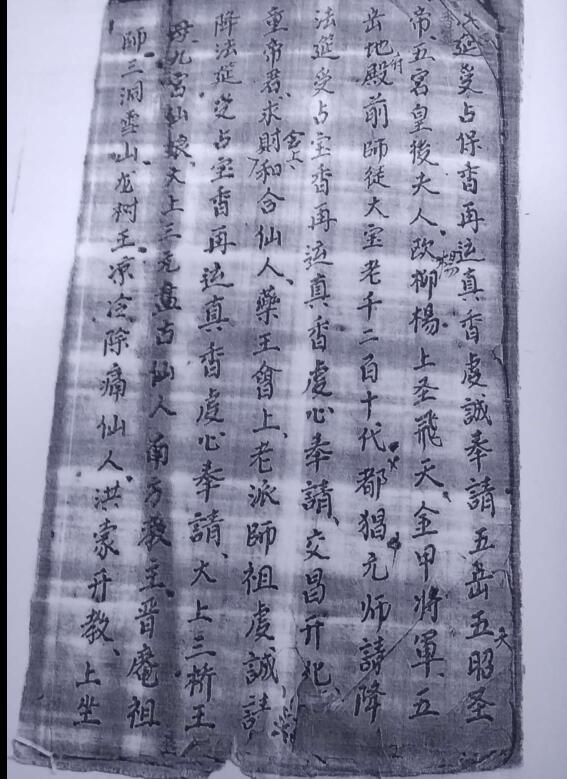 筵受占保香再运真香虔誠奉請五岳五昭圣
帝五宮皇後夫人欧柳楊上圣飛天金甲将軍五
岳地殿前師徒大宝老千二百十代都猖元师請降
法筵受占宝香再运真香虔心奉請交昌开化
童帝君求財和合仙人藥王會上老派師祖虔誠請
降法筵受占宝香再运真香虔心奉請大上三桥王
母九宮仙娘大上三元盘古仙人南方教主晋庵祖
師三洞雪山龙树王凉冷除痛仙人洪蒙开教上坐